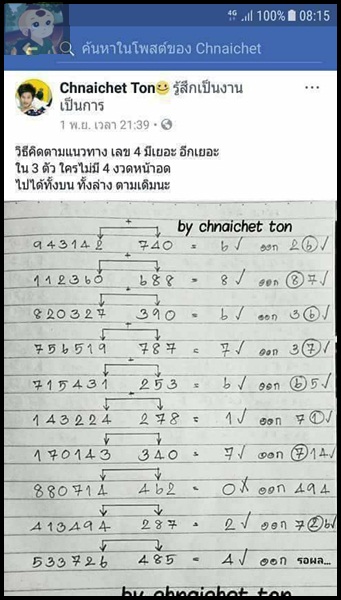 4G 100% 08:15
ค้นหาในโพสต์ของ Chnaichet
Chnaichet Ton รู้สึกเป็นงาน
เป็นการ
1 พ.ย. เวลา 21:39 •
วิธีคิดตามแนวทาง เลข 4 มีเยอะ อีกเยอะ
ใน 3 ตัว ใครไม่มี 4 งวดหน้าอด
ไปได้ทั้งบน ทั้งล่าง ตามเดิมนะ
by chnaichet ton
+
943142 740 = 6 √ ออก 26 √
+
112360 688 = 8 √ ออก 87 √
+
820327 390 = 6 √ ออก 36 √
+
756519 787 = 7 √ ออก 37 √
+
715431 253 = 6 √ ออก 65 √
+
143224 278 = 1 √ ออก 71 √
170143 340 = 7 √ ออก 714 √
880714 462 = 0 X ออก 494
413494 287 = 2 √ ออก 726 √
533726 485 = 4 √ ออก รอผล...
by chnaichet ton